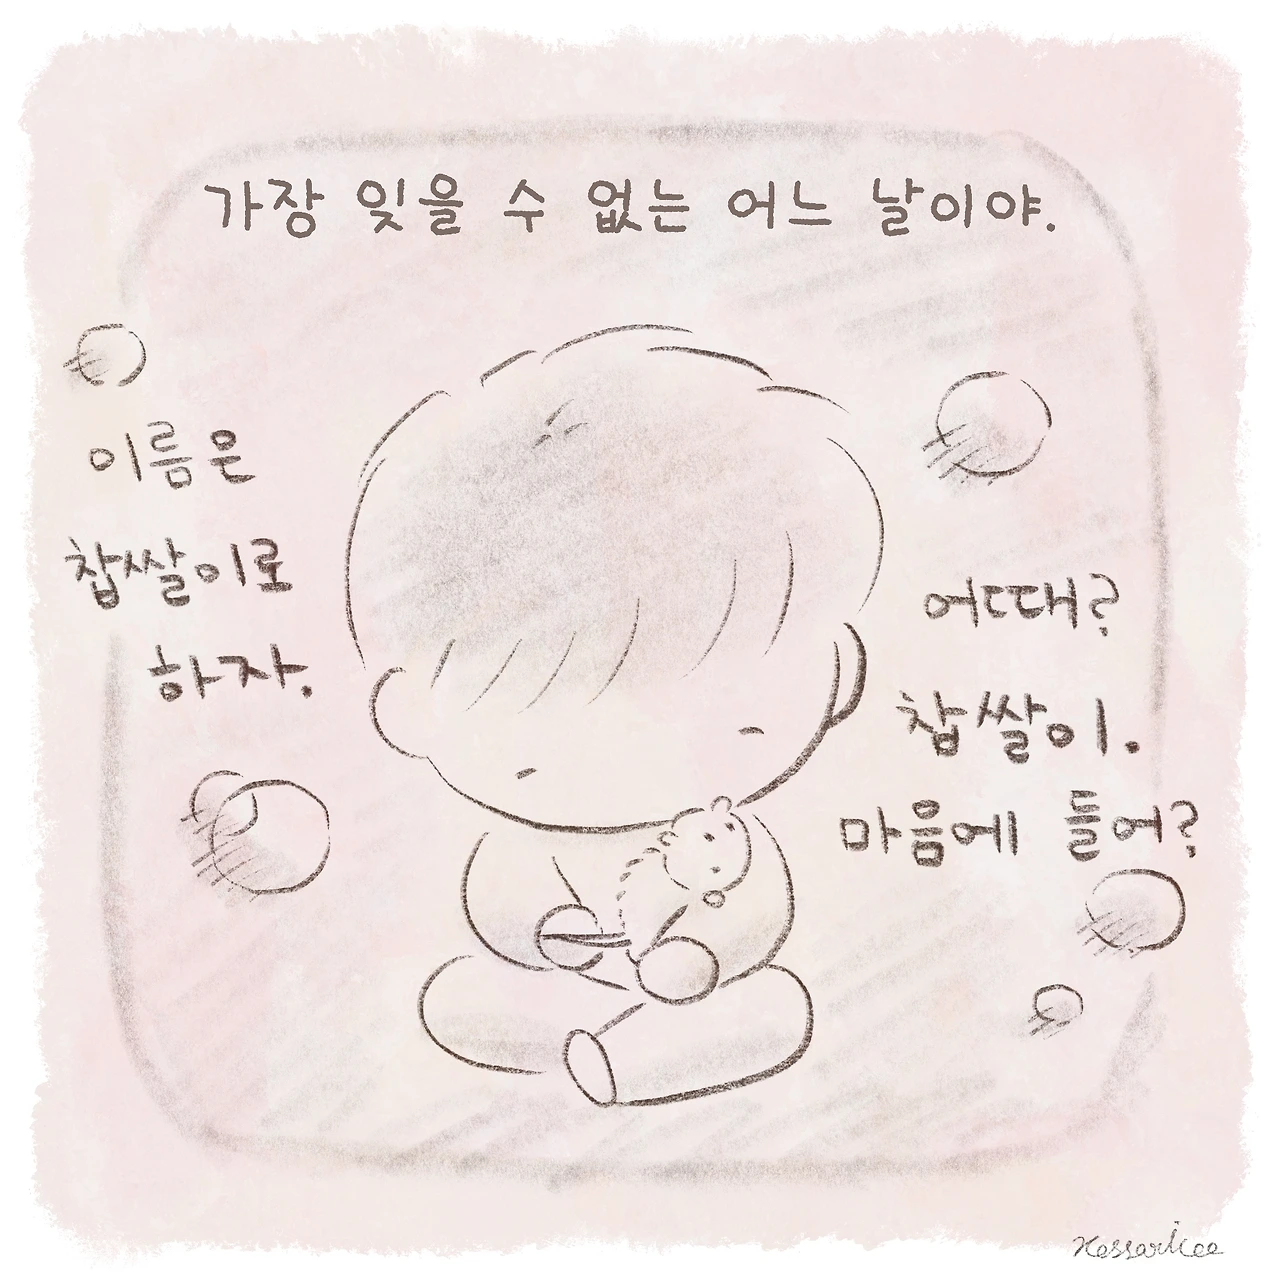 가장 잊을 수 없는 어느 날이야.
이름은
찹쌀이로
하자.
어때?
찹쌀이.
마음에 들어?